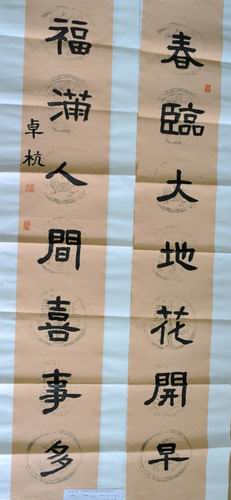 春臨大地花開早
福滿人間喜事多
卓杭